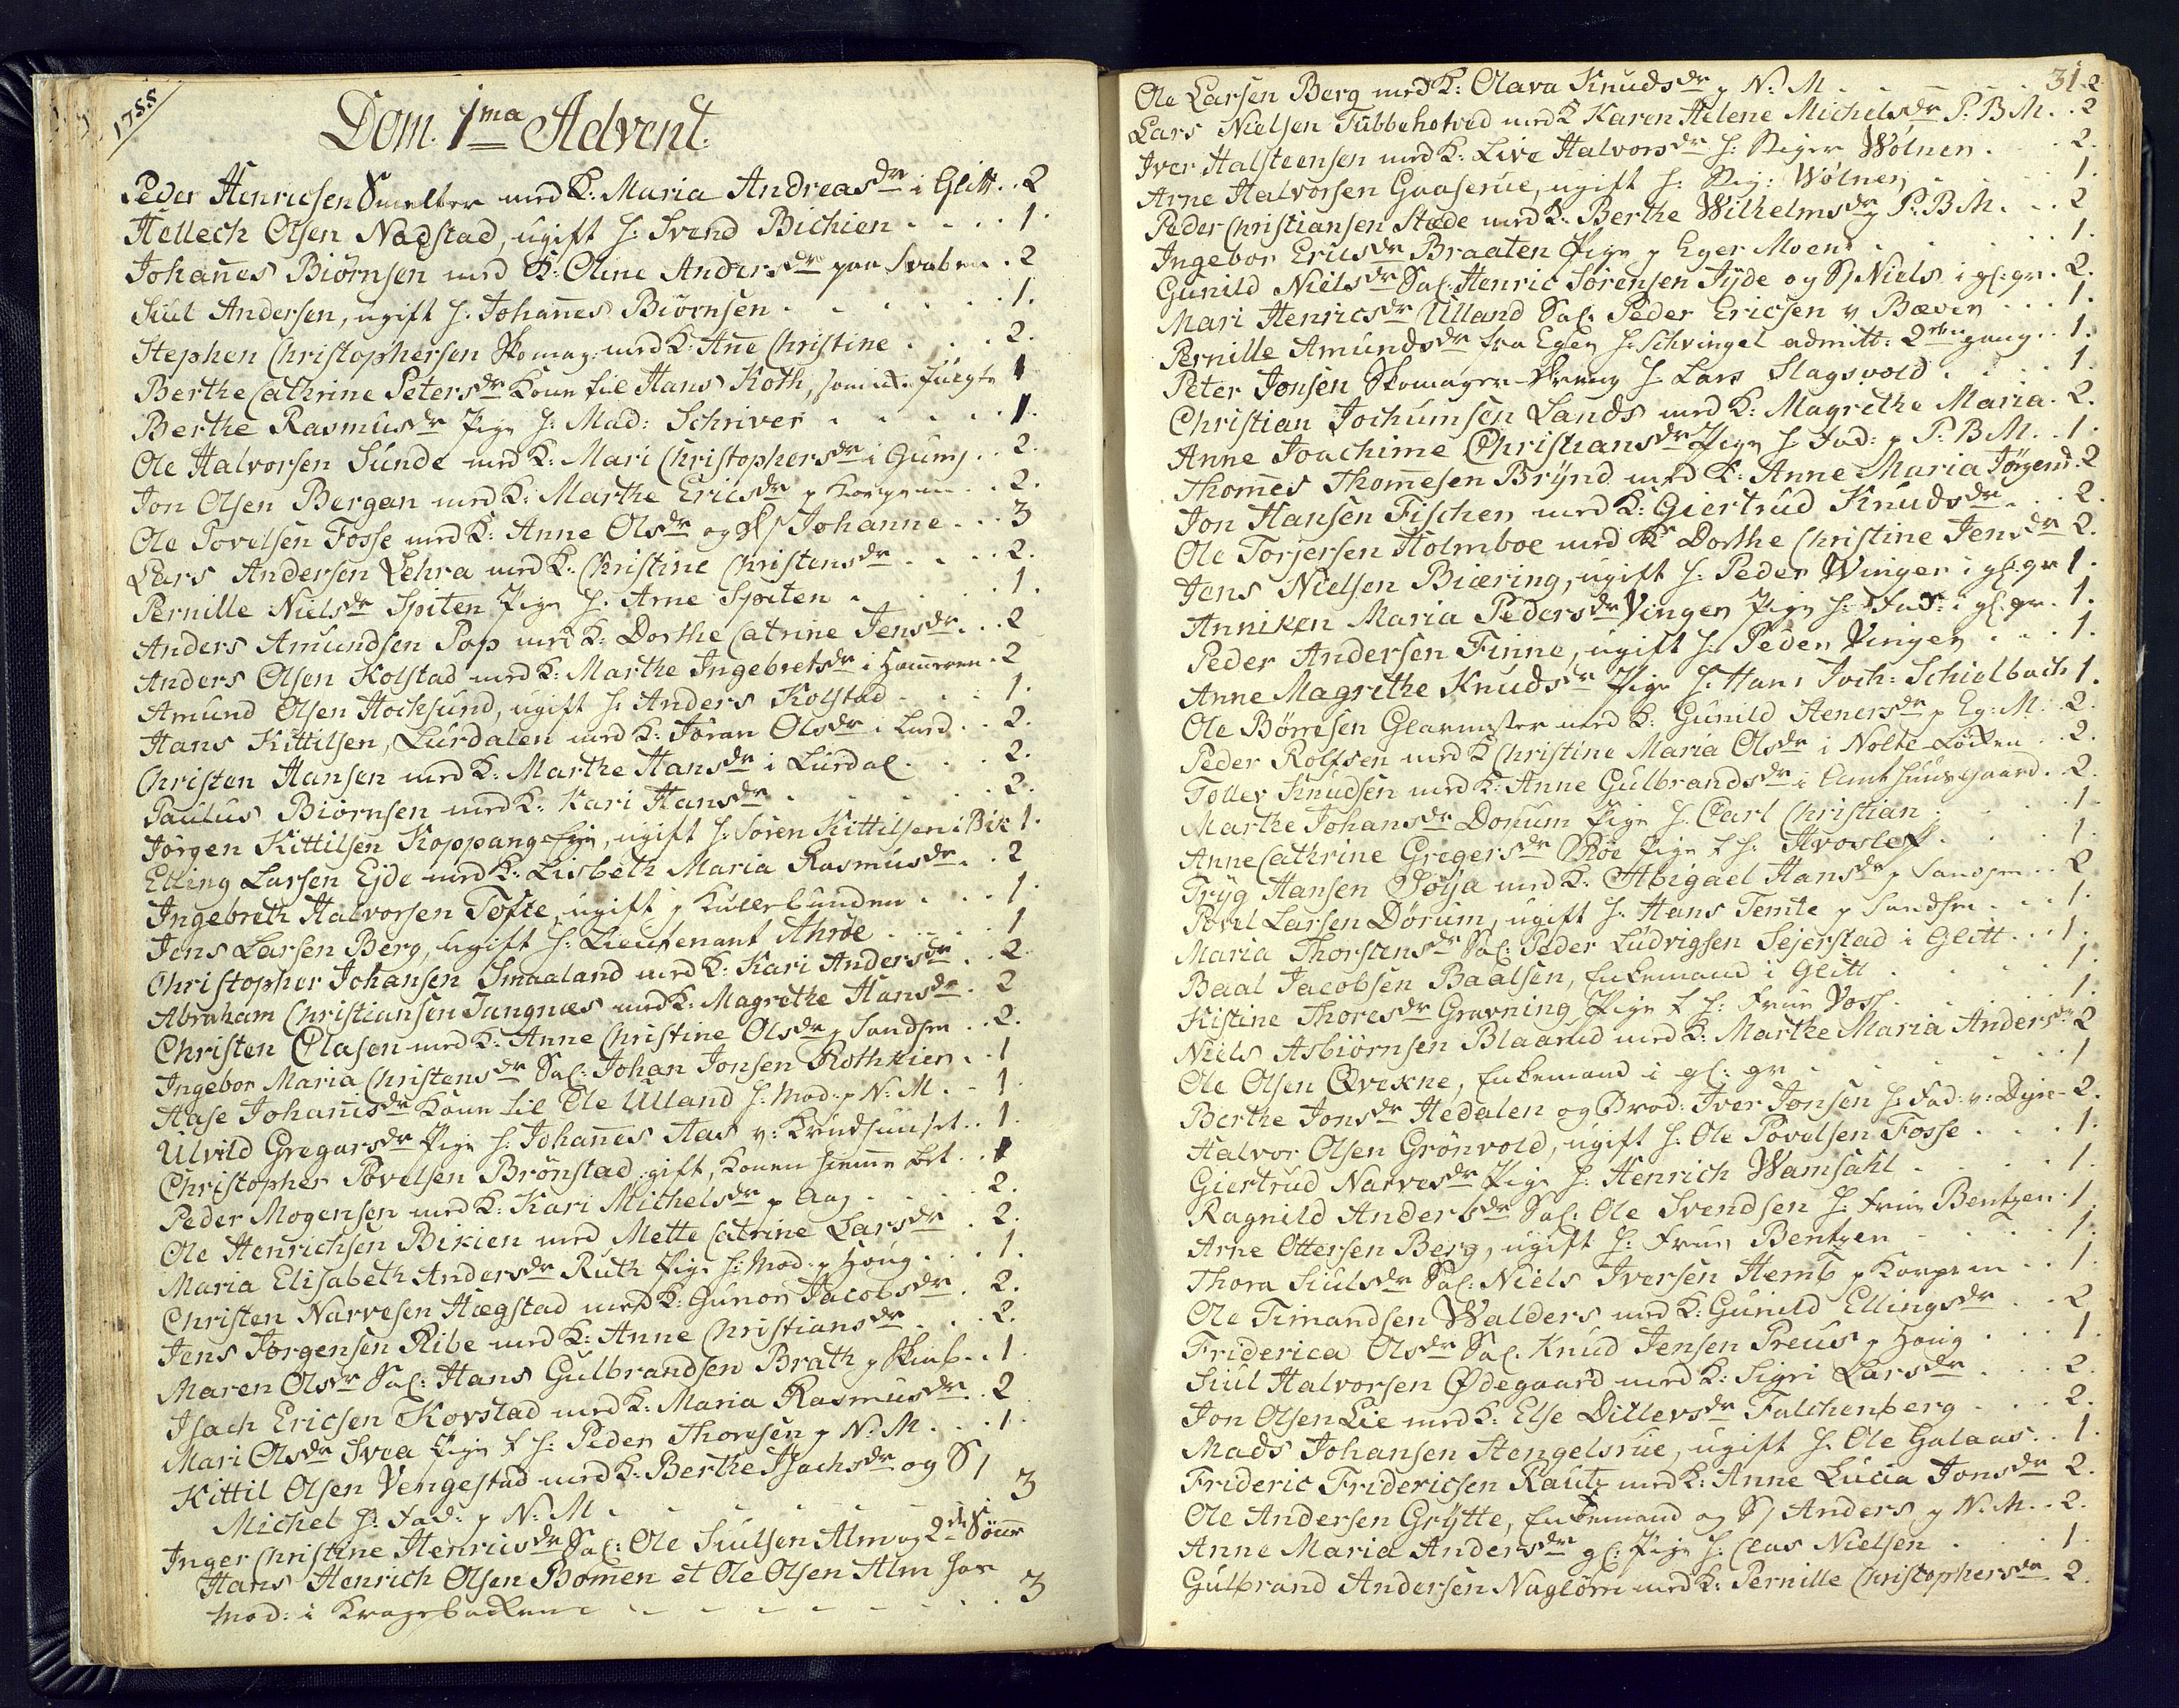 1788
Dom. 1ma Advent.
Peder Henricsen Smelter med K: Maria Andreasdr i Glitt. . 2
Hellech Olsen Nadstad, ugift h: Svend Bichien . . . . 1.
Johan̄es Biørnsen med K: Oline Andersdr paa Svaben . 2
Siul Andersen, ugift h: Johan̄es Biørnsen . . . . . 1.
Stephen Christophersen Skomag: med K: An̄e Christine . . . 2.
Berthe Cathrine Petersdr Kone til Hans Koth, 1
Berthe Rasmusdr Pige h: Mad: Schriver . . . . . 1.
Ole Halvorsen Sunde med K: Mari Christophersdr i Gumj . . 2.
Jon Olsen Bergan med K: Marthe Ericsdr p . . 2.
Ole Povelsen Fosse med K: Anne Olsdr og D/ Johanne . . . 3
Lars Andersen Lehra med K: Christine Christensdr . . . . 2.
Pernille Nielsdr Spiten Pige h: Arne Spiten . . . . . 1.
Anders Amundsen Pop med K: Dorthe Catrine Jensdr . . 2
Anders Olsen Kolstad med K: Marthe Ingebretsdr i Ham̄eren . 2
Amund Olsen Hochsund, ugift h: Anders Kolstad . . . . 1.
Hans Kittilsen, Lurdalen med K: Jøran Olsdr i Lurd . . 2.
Christen Hansen med K: Marthe Hansdr i Lurdal . . . . 2.
Paulus Biørnsen med K: Kari Hansdr . . . . . 2.
Jørgen Kittilsen Koppang, ugift h: Søren Kittilsen i Bik 1.
Elling Larsen Ejde med K: Lisbeth Maria Rasmusdr . . 2
Ingebreth Halvorsen Tofte, ugift p Kullebunden . . . 1.
Jens Larsen Berg, ugift h: Lieutenant Ahrøe . . . . 1
Christopher Johansen Smaaland med K: Kari Andersdr . . 2
Abraham Christiansen Tangnæs med K: Magrethe Hansdr . 2
Christen Olasen med K: Anne Christine Olsdr p Sandsm . . 2.
Ingebor Maria Christensdr Sal: Johan Jonsen Rothkier . . 1
Aase Johan̄isdr Kone til Ole Ulland h: Mod: p N: M. . . 1
Ulvild Gregarsdr Pige h: Johan̄es Aas v: Krudhuuset . . 1.
Christopher Povelsen Brønstad, gift, Konen hiem̄e bet. . 1
Peder Mogensen med K: Kari Michelsdr p Aag . . . . 2.
Ole Henrichsen Bikien med Mette Catrine Larsdr . . 2.
Maria Elisabeth Andersdr Ruth Pige h: Mod: p Houg . . . 1.
Christen Narvesen Hægstad med K: Gunor Jacobsdr . 2.
Jens Jørgensen Ribe med K: Anne Christiansdr . . . 2.
Maren Olsdr Sal: Hans Gulbrandsen Brath p . . 1
Isach Ericsen Korstad med K: Maria Rasmusdr . . 2
Mari Olsdr Svea Pige t h: Peder Thoresen p N: M. . . . 1.
Kittil Olsen Vengestad med K: Berthe Isachsdr og S/
Michel h: Fad: p N: M . . . . . . 3
Inger Christine Henricsdr Sal: Ole Siulsen Alm og 2de Søner
Hans Henrich Olsen Bomen et Ole Olsen Alm hos
Mod: i Kragsbacken . . . . . . . 3
31.
Ole Larsen Berg med K: Olava Knudsdr p N: M . . . . . 2
Lars Nielsen Tubbehotved med K Karen Helene Michelsdr P: B M. . 2
Iver Halsteensen med K: Live Halvorsdr h: Stiger Wølner . . . 2.
Arne Halvorsen Gaaserue, ugift h: Stig: Wølner . . . . 1.
Peder Christiansen Stæde med K: Berthe Wilhelmsdr p P: B M. . . 2
Ingebor Ericsdr Braaten Pige p Eger Moen . . . . . 1.
Gunild Nielsdr Sal: Henric Sørensen Fyde og S/ Niels i gl: gr. 2.
Mari Henricsdr Ulland Sal: Peder Ericsen v Bæver . . . 1.
Pernille Amundsdr fra Egen h: Schvingel admitt: 2den gang . . 1.
Peter Jonsen Skomager Dreng h: Lars Slagsvold . . . . 1.
Christian Jochumsen Lands med K: Magrethe Maria . 2.
Anne Joachime Christiansdr Pige h: Fad: p P. B M . . 1.
Thom̄es Thom̄esen Brynd med K: Anne Maria Jørgensd. 2
Jon Hansen Fischer med K: Giertrud Knudsdr . . . 2.
Ole Torjersen Holmboe med K: Dorthe Christine Jensdr 2.
Jens Nielsen Biæring, ugift h: Peder Winger i gl: gr 1.
Anniken Maria Pedersdr Vinger Pige h: Fad: i gl: gr. 1.
Peder Andersen Finne, ugift h: Peder Vinger . . . 1.
Anne Magrethe Knudsdr Pige h: Hans Joch: Schielbach 1.
Ole Børresen Glarmester med K: Gunild Aenersdr p Eg: M. 2.
Peder Rolfsen med K Christine Maria Olsdr i Nolte-Løkken . 2.
Toller Knudsen med K: Anne Gulbrandsdr i Amthuusgaard. 2.
Marthe Johansdr Dorum Pige h: Carl Christian . . . 1.
Anne Cathrine Gregersdr Røe Pige t h: Hvoslef . . . 1.
Tryg Hansen Døja med K: Abigael Hansdr p Sandsm . . 2
Povel Larsen Dørum, ugift h: Hans Temte p Sandsm . . . 1.
Maria Thorstensdr Sal: Peder Ludvigsen Sejerstad i Glitt . . . 1.
Baal Jacobsen Baalsen, Enkemand i Glitt . . . . 1.
Kistine Thoresdr Gravning Pige t h: Frue Voss . . . . 1.
Niels Asbiørnsen Blaarud med K: Marthe Maria Andersdr 2
Ole Olsen Qvekne, Enkemand i gl: gr . . . . . . 1
Berthe Jonsdr Hedalen og Brod: Iver Jonsen h: Fad: v: Dyre- 2.
Halvor Olsen Grønvold, ugift h: Ole Povelsen Fosse . . . 1.
Giertrud Narvesdr Pige h: Henrich Wamsahl . . . . 1.
Ragnild Andersdr Sal: Ole Svendsen h: Frue Bentzen . 1.
Arne Ottersen Berg, ugift h: Frue Bentzen . . . . 1.
Thora Siulsdr Sal: Niels Iversen Hemb p . . 1.
Ole Timandsen Walders med K: Gunild Ellingsdr . . . 2
Friderica Olsdr Sal: Knud Jensen Preus p Houg . . . 1.
Siul Halvorsen Ødegaard med K: Sigri Larsdr . . . 2.
Jon Olsen Lie med K: Else Dillevsdr Falchenberg . . . 2.
Mads Johansen Stengelsrue, ugift h: Ole Galaas . . 1.
Frideric Fridericsen Rautz med K: Anne Lucia Jonsdr 2.
Ole Andersen Grytte, Enkemand og S/ Anders p N. M. . 2.
Anne Maria Andersdr gl: Pige h: Clas Nielsen . . . 1.
Gulbrand Andersen Nagløre med K: Pernille Christophersdr 2.